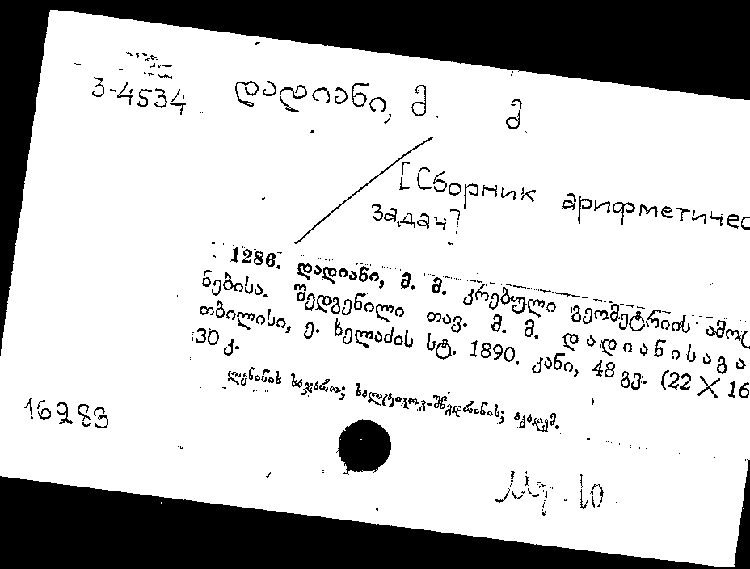 3-4534
დადიანი, მ. მ.
[Сборник арифметичес
задач]
1286. დადიანი, მ. მ. კრებული გეომეტრიის ამოც
ნებისა. შედგენილი თავ. მ. მ. დადიანისაგა
თბილისი, ე. ხელაძის სტ. 1890. კანი, 48 გვ. (22 X 16
30 კ.
ლენინის საჯარო;
16283